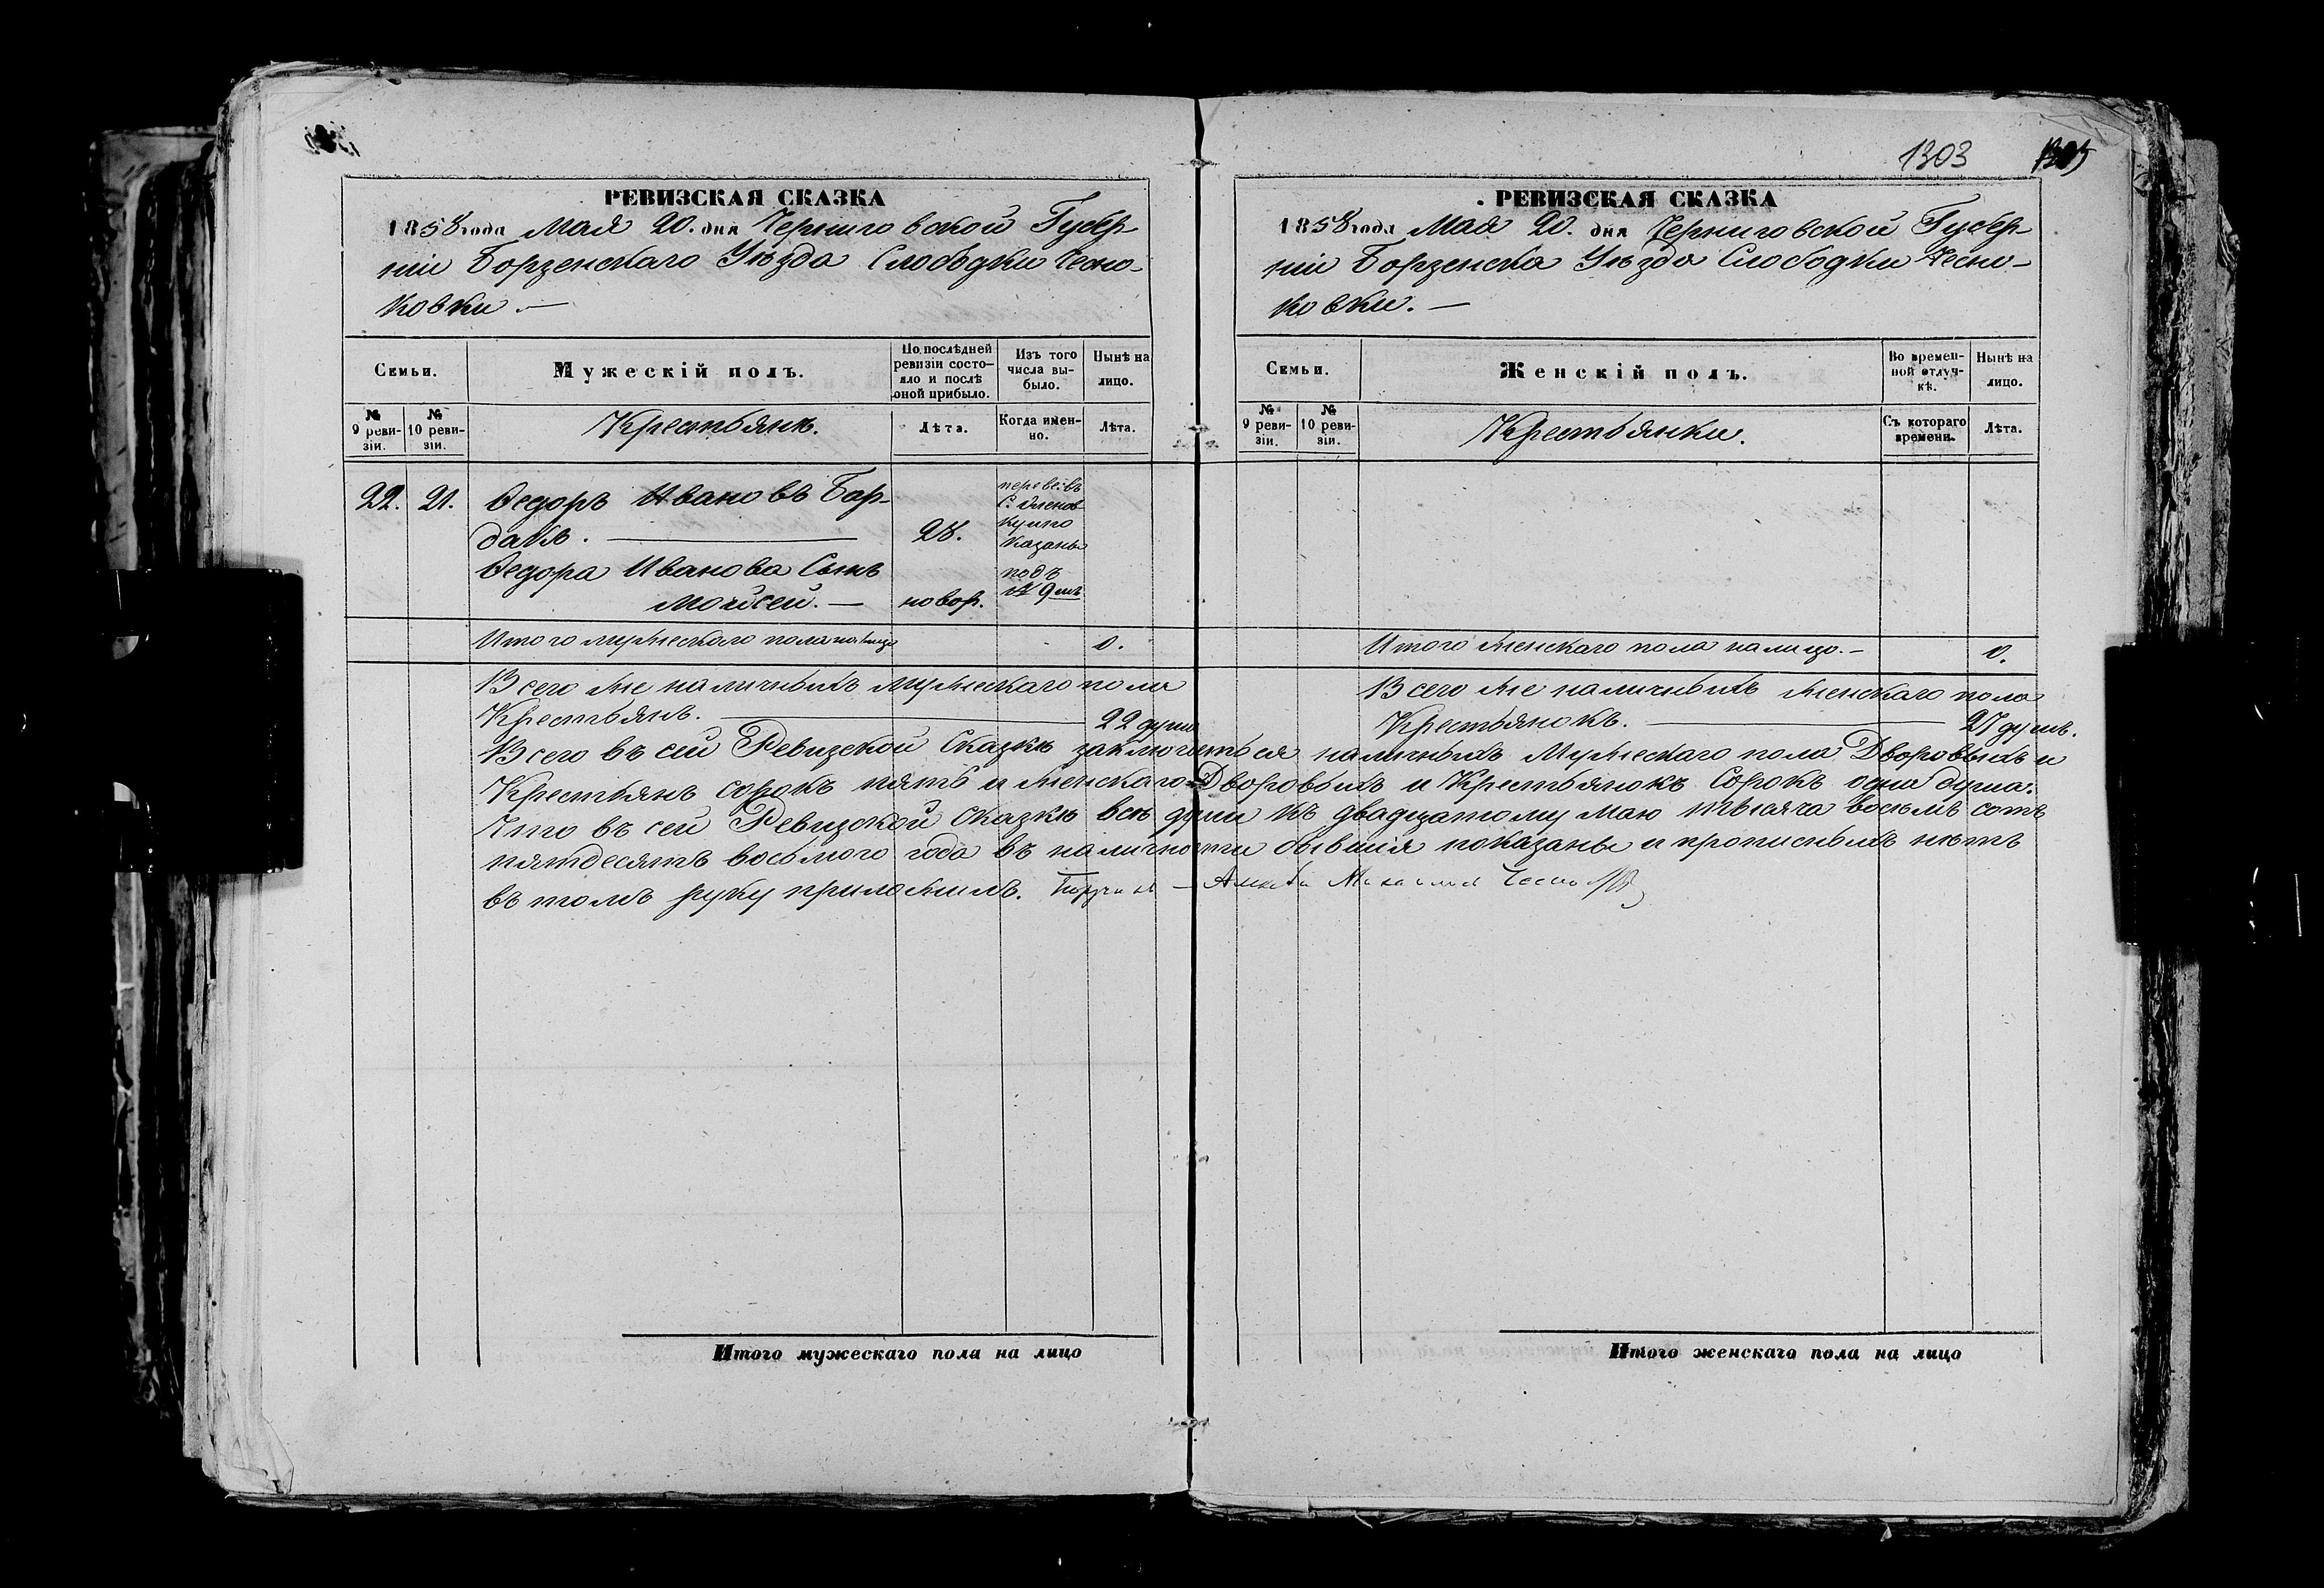 1303
РЕВИЗСКАЯ СКАЗКА
1858 года Мая 20. дня Черниговской Губер-
ніи Борзенскаго Уѣзда Слободки Чесно-
ковки. —
Семьи.
Мужескій полъ.
По послѣдней ревизіи состо-яло и послѣ оной прибыло.
Изъ того числа вы-было.
Нынѣ на лицо.
№ 9 реви-зіи.
№ 10 реви-зіи.
Крестьянъ.
Лѣта.
Когда имен-но.
Лѣта.
22. 21. Ѳедоръ Ивановъ Бар-
давъ. — 28.
Ѳедора Иванова Сынъ
Мойсей. — новор.
перевед. въ
С.
показаны
подъ
№ 9мъ
Итого мужескаго пола налицо 0.
Всего же наличныхъ мужескаго пола
Крестьянъ. — 22 душъ
РЕВИЗСКАЯ СКАЗКА
1858 года Мая 20. дня Черниговской Губер-
ніи Борзенска Уѣзда Слободки Чесно-
ковки. —
Семьи.
Женскій полъ.
Во времен-ной отлуч-кѣ.
Нынѣ на лицо.
№ 9 реви-зіи.
№ 10 реви-зіи.
Крестьянки.
Съ котораго времени.
Лѣта.
Итого женскаго пола налицо. — 0.
Всего же наличныхъ женскаго пола
Крестьянокъ. — 27 душъ.
Всего въ сей Ревизской Сказкѣ заключается наличныхъ Мужескаго пола Дворовыхъ и
Крестьянъ сорокъ пять и женскаго Дворовыхъ и Крестьянокъ Сорокъ одна душа.
Что въ сей Ревизской Сказкѣ всѣ души къ двадцатому маю тысяча восемь сотъ
пятдесятъ восьмого года въ наличности бывшія показаны и прописныхъ нѣтъ
въ томъ руку приложилъ.
Итого мужескаго пола на лицо
Итого женскаго пола на лицо